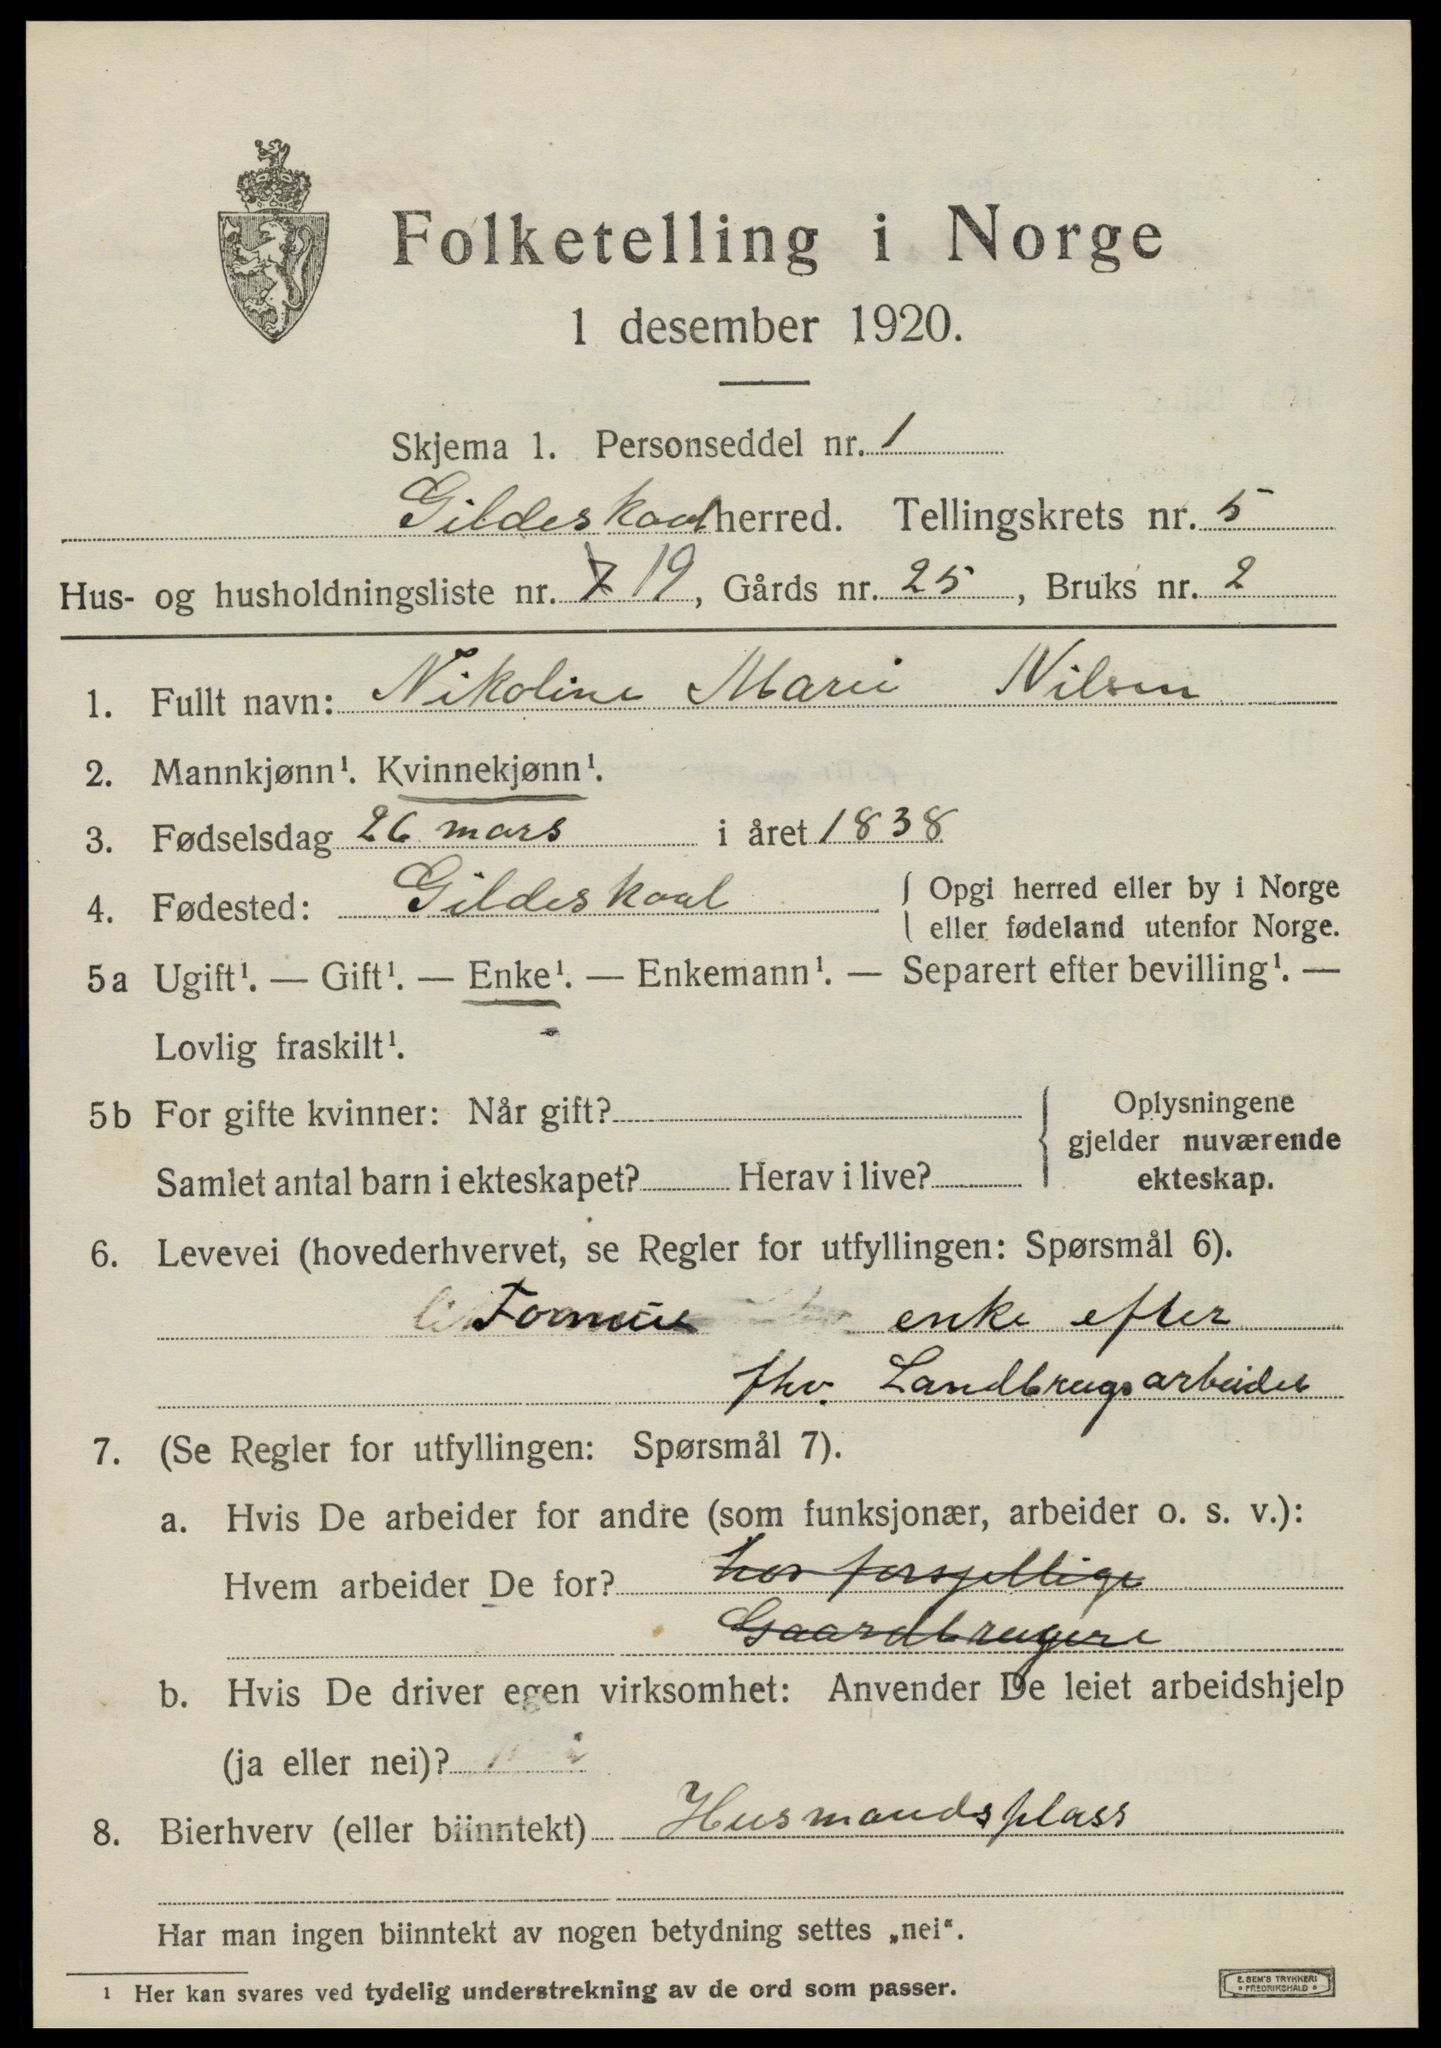 Folketelling i Norge
1 desember 1920.
Skjema 1. Personseddel nr. 1
Gildeskaal herred. Tellingskrets nr. 5
Hus- og husholdningsliste nr. 7 19, Gårds nr. 25, Bruks nr. 2
1. Fullt navn: Nikoline Marie Nilsen
2. Mannkjønn¹. Kvinnekjønn¹.
3. Fødselsdag 26 mars i året 1838
4. Fødested: Gildeskaal { Opgi herred eller by i Norge
eller fødeland utenfor Norge.
5a Ugift¹. — Gift¹. — Enke¹. — Enkemann¹. — Separert efter bevilling¹. —
Lovlig fraskilt¹.
5b For gifte kvinner: Når gift? { Oplysningene
gjelder nuværende
Samlet antal barn i ekteskapet? Herav i live? ekteskap.
6. Levevei (hovederhvervet, se Regler for utfyllingen: Spørsmål 6).
enke efter
fhv. Landbrugsarbeider
7. (Se Regler for utfyllingen: Spørsmål 7).
a. Hvis De arbeider for andre (som funksjonær, arbeider o. s. v.):
Hvem arbeider De for? hos forsjellige
Gaardbrugere
b. Hvis De driver egen virksomhet: Anvender De leiet arbeidshjelp
(ja eller nei)? nei
8. Bierhverv (eller biinntekt) Husmandsplass
Har man ingen biinntekt av nogen betydning settes „nei“.
¹ Her kan svares ved tydelig understrekning av de ord som passer.
E. SEM'S TRYKKERI
FREDRIKSHALD